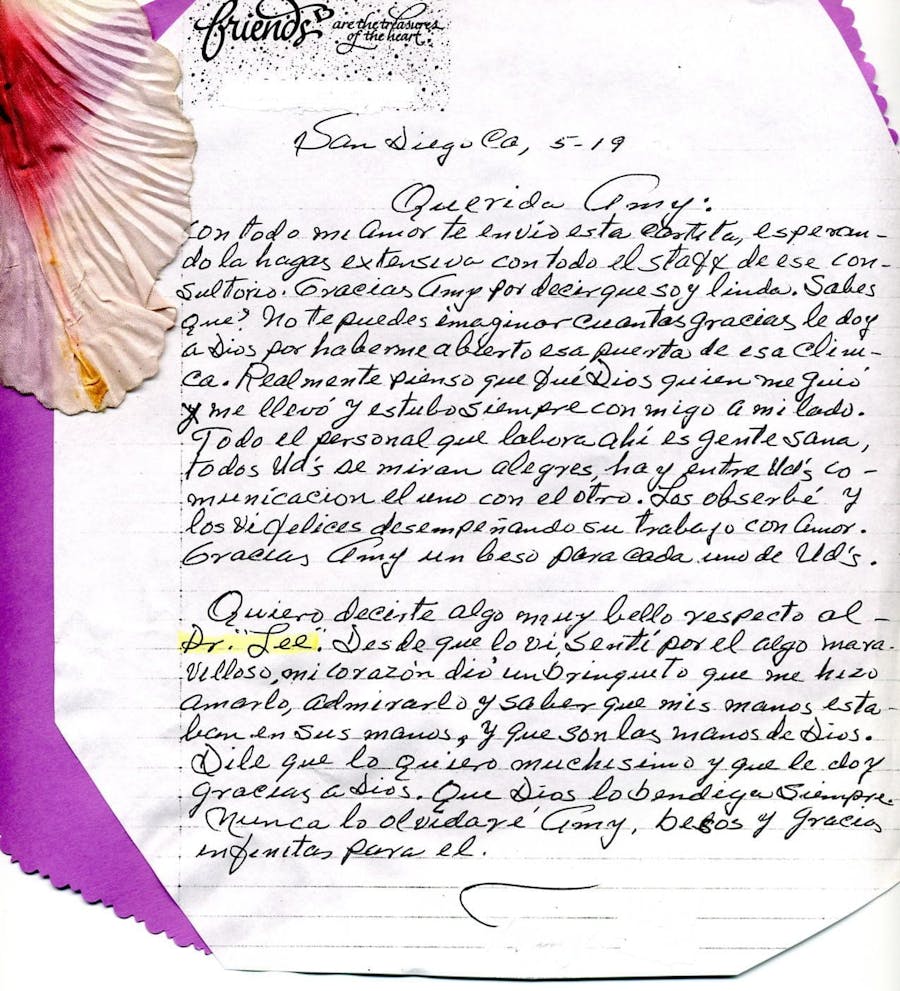 friends are the treasures
of the heart
San Diego Ca, 5-19
Querida Amy:
Con todo mi Amor te envio esta cartita, esperan-
do la hagas extensiva con todo el staff de ese con-
sultorio. Gracias Amy por decir que soy linda. Sabes
que? No te puedes imaginar cuantas gracias le doy
a Dios por haberme abierto esa puerta de esa Clini-
ca. Realmente pienso que fué Dios quien me guió
y me llevó y estubo siempre conmigo a mi lado.
Todo el personal que labora ahí es gente sana,
todos Ud's se miran alegres, hay entre Ud's co-
municacion el uno con el otro. Los observé y
los vi felices desempeñando su trabajo con Amor.
Gracias Amy un beso para cada uno de Ud's.
Quiero decirte algo muy bello respecto al-
Dr. "Lee". Desde que lo vi, sentí por el algo mara-
villoso, mi corazón dió un brinquito que me hizo
amarlo, admirarlo y saber que mis manos esta-
ban en sus manos, y que son las manos de Dios.
Dile que lo quiero muchisimo y que le doy
gracias a Dios. Que Dios lo bendiga siempre.
Nunca lo olvidaré Amy, besos y gracias
infinitas para el.